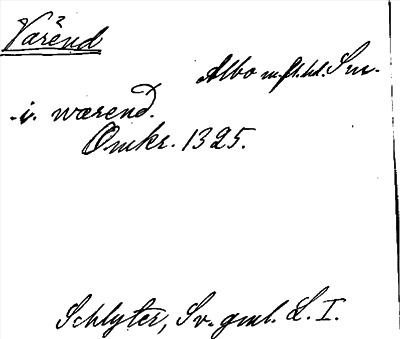 Värend
Albo m.fl. hd. Sm.
.i. wærend.
Omkr. 1325.
Schlyter, Sv. gml. L. I.